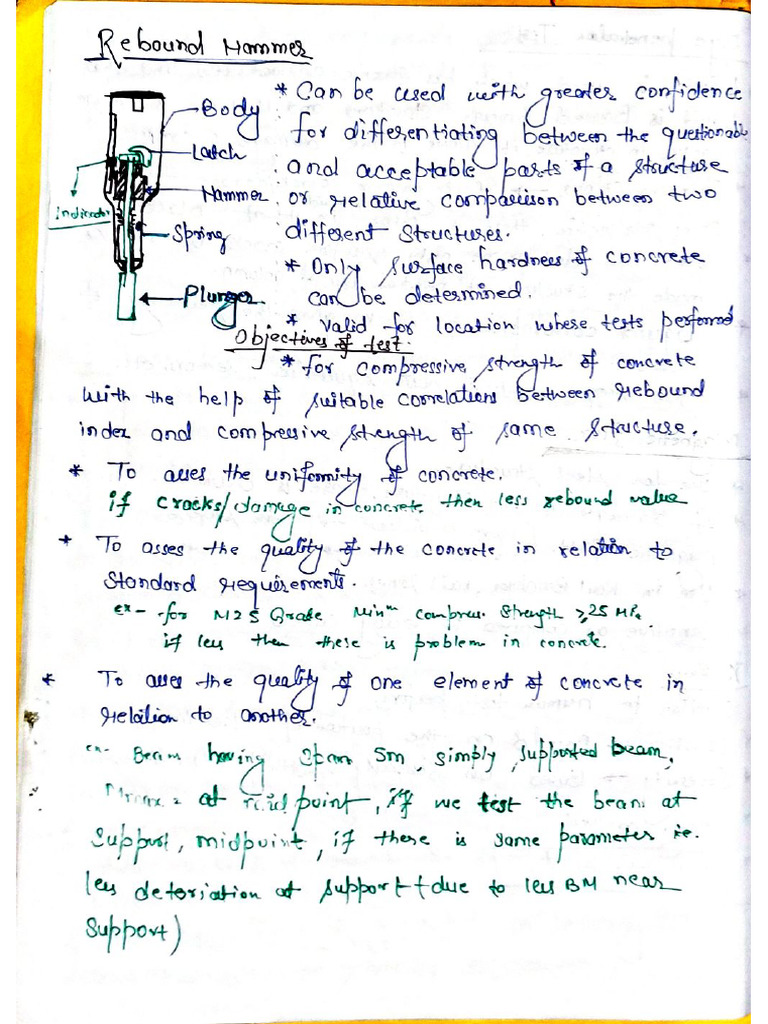 Rebound Hammer
Body
Latch
Hammer
Indicator
Spring
Plunger
* Can be used with greater confidence
for differentiating between the questionable
and acceptable parts of a structure
or relative comparison between two
different structures.
* Only surface hardness of concrete
can be determined.
* valid for location where tests performed
Objectives of test.
* for compressive strength of concrete
with the help of suitable correlations between rebound
index and compressive strength of same structure.
* To asses the uniformity of concrete.
if cracks/damage in concrete then less rebound value
* To asses the quality of the concrete in relation to
standard requirements.
ex- for M25 Grade Minm compress. Strength ≥25 MPa
if less then these is problem in concrete.
* To asses the quality of one element of concrete in
relation to another.
ex- Beam having Span 5m, simply supported beam,
at midpoint, if we test the beam at
support, midpoint, if there is same parameter ie.
less deteriation at support (due to less BM near
support)